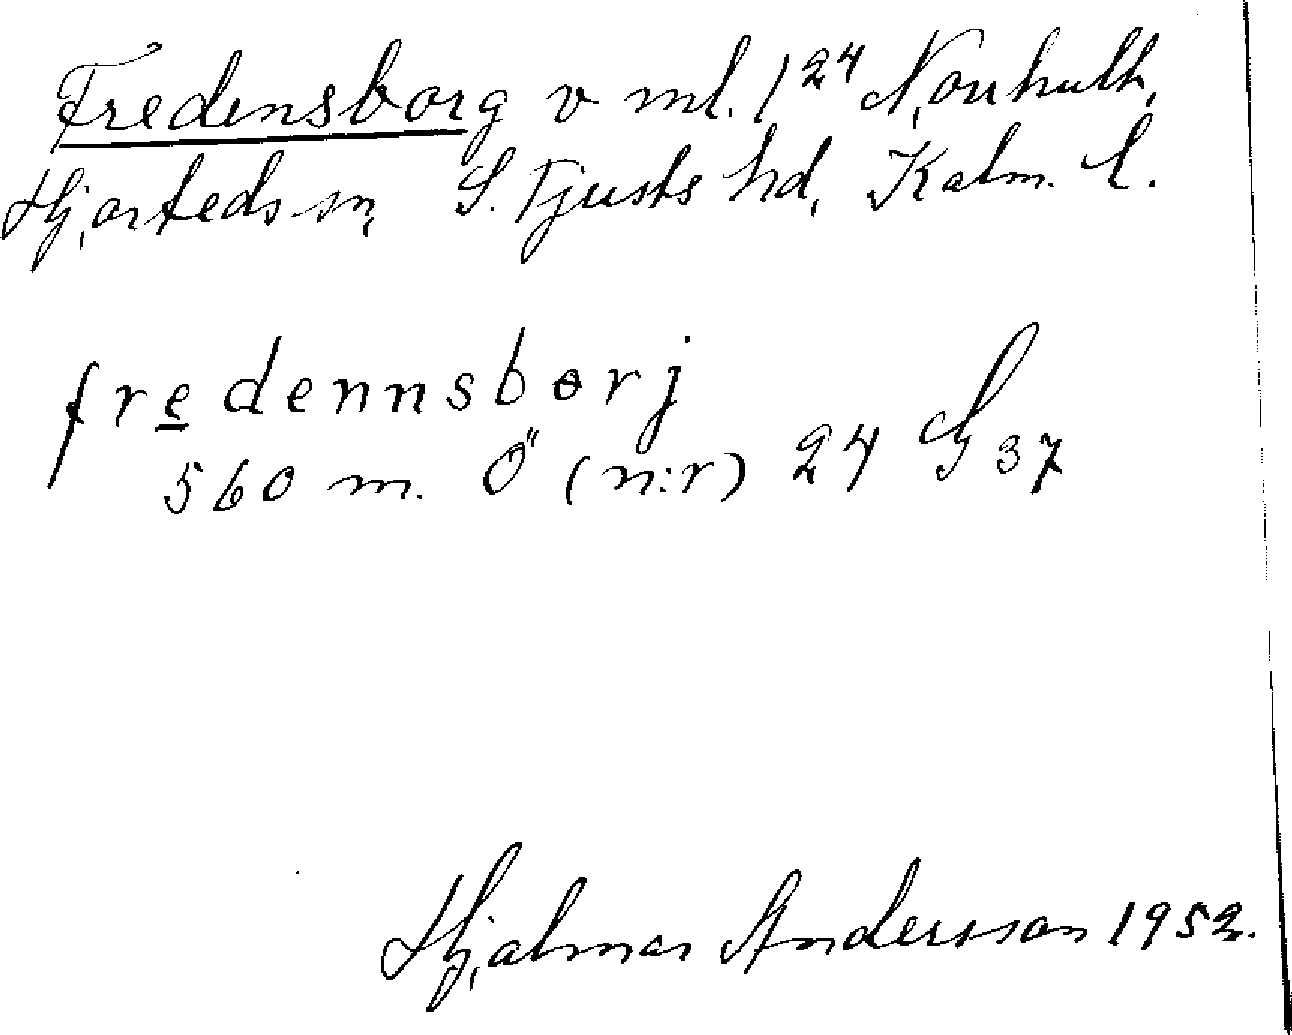 Fredensborg v ml. 1²⁴ Norrhult,
Hjorteds sn, S. Tjusts hd, Kalm. l.
fredennsborj
560 m. Ö (n:r) 24 G 37
Hjalmar Andersson 1952.